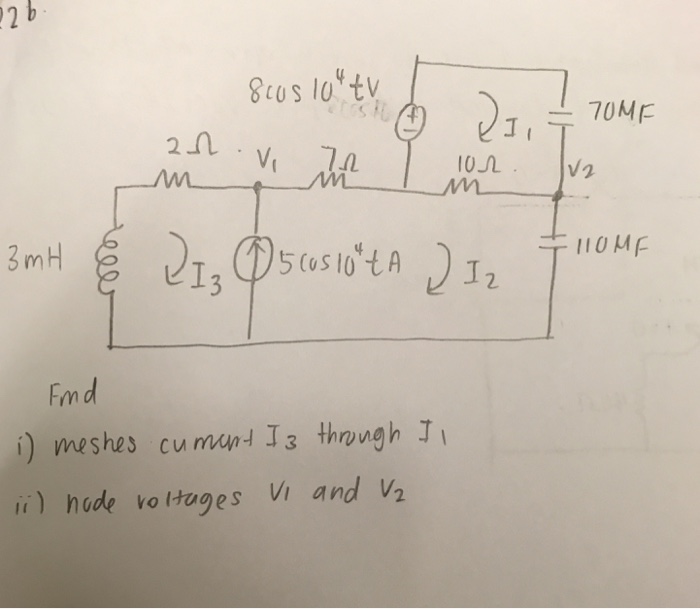 22b.
8cos10⁴tV
I₁
70MF
2Ω
V₁
7Ω
10Ω
V2
3mH
I3
5cos10⁴tA
I2
110MF
Find
i) meshes current I3 through I1
ii) node voltages V1 and V2